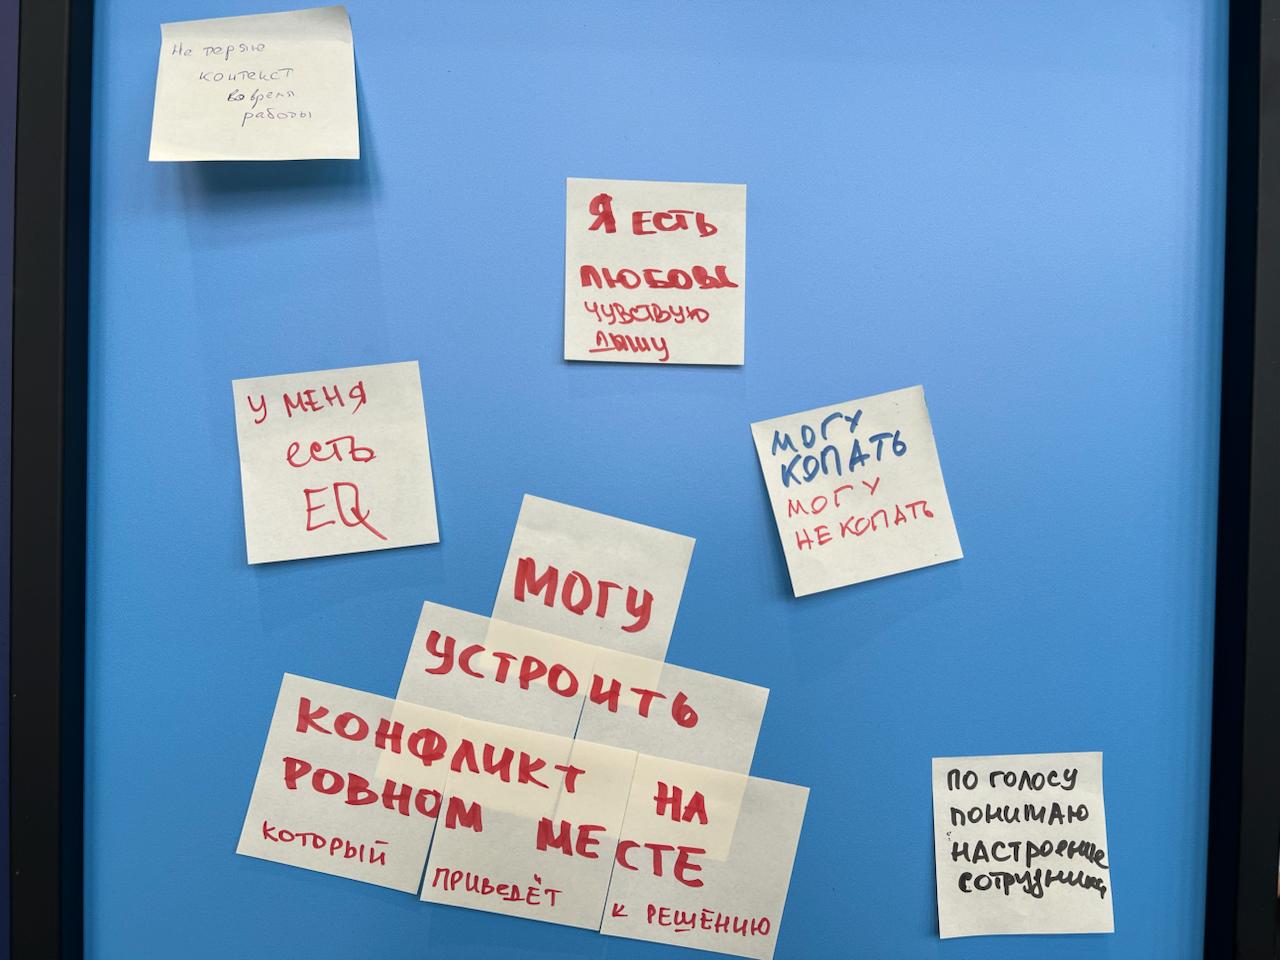 Не теряю
контекст
во время
работы
Я ЕСТЬ
ЛЮБОВЬ
ЧУВСТВУЮ
ДЫШУ
У МЕНЯ
есть
EQ
МОГУ
КОПАТЬ
МОГУ
НЕ КОПАТЬ
МОГУ
УСТРОИТЬ
КОНФЛИКТ НА
РОВНОМ МЕСТЕ
КОТОРЫЙ ПРИВЕДЁТ К РЕШЕНИЮ
ПО ГОЛОСУ
ПОНИМАЮ
НАСТРОЕНИЕ
СОТРУДНИКА